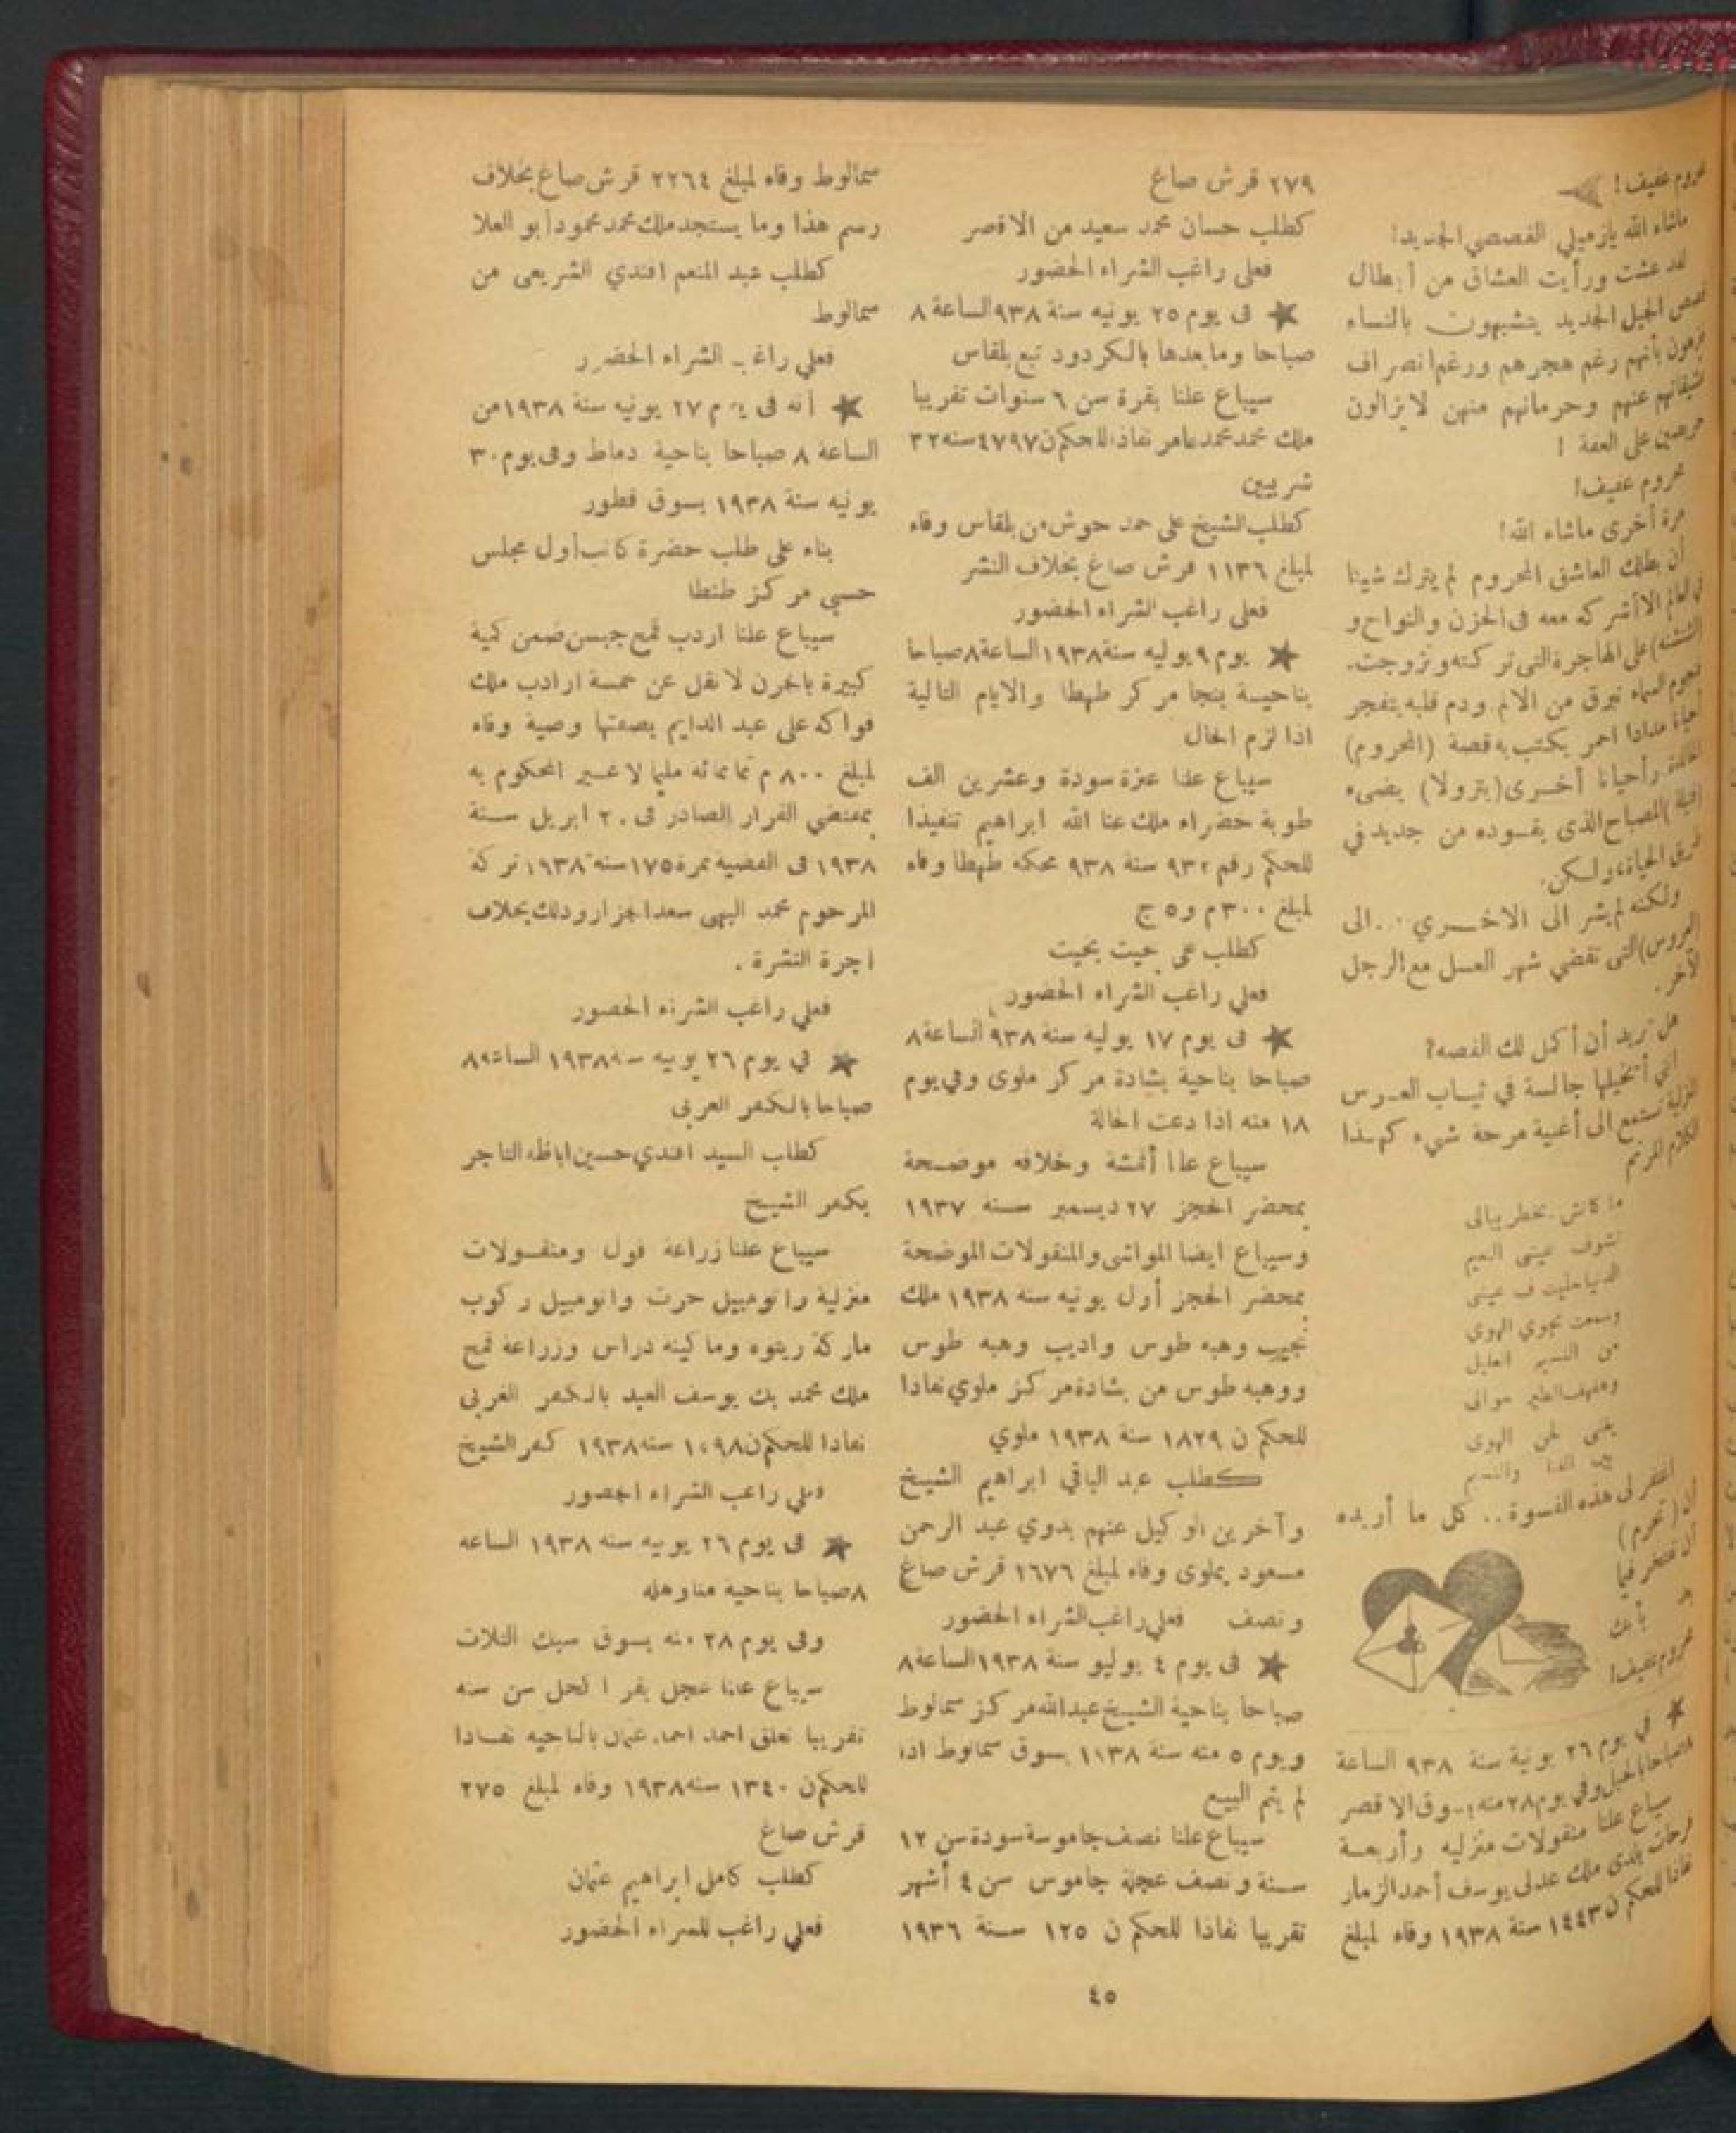 محروم عفيف !
ماشاء الله يازميلي القصصي الجديد!
لقد عشت ورأيت العشاق من أبطال
قصص الجيل الجديد يتشبهون بالنساء
بأنهم رغم هجرهم ورغم انصراف
عنهم وحرمانهم منهن لايزالون
على العفة !
محروم عفيف!
مرة أخرى ماشاء الله!
أن بطلك العاشق المحروم لم يترك شيئا
في العالم الا أشركه معه فى الحزن والنواح و
على الهاجرة التى تركته وتزوجت.
السماء تبرق من الالم ودم قلبه يتفجر
مدادا احمر يكتب به قصة (المحروم)
وأحيانا أخرى (بترولا) يضىء
المصباح الذى يقوده من جديد في
الحياة، ولكن.
ولكنه لم يشر الى الاخري . . الى
(العروس) التى تقضي شهر العسل مع الرجل
الآخر.
هل تريد أن أكمل لك القصه؟
انى أتخيلها جالسة في ثياب العروس
تستمع الى أغنية مرحة شيء كهذا
الكلام
ما كانش يخطر ببالى
تشوف عينى النعيم
الدنيا حليت ف عينى
وسمعت نجوي الهوي
من النسيم العليل
الطير حوالى
يغنى لحن الهوى
والنسيم
اغفر لى هذه القسوة . . كل ما أريده
أن (تحرم)
أن تفتخر فيما
بأنك
محروم عفيف!
★ في يوم ٢٦ يونية سنة ٩٣٨ الساعة
٨ صباحا بالحبل وفي يوم ٢٨ منه بسوق الاقصر
سيباع علنا منقولات منزليه وأربعة
ملك عدلى يوسف أحمد الزمار
نفاذا للحكم ن ١٤٤٣ سنة ١٩٣٨ وفاء لمبلغ
٢٧٩ قرش صاغ
كطلب حسان محمد سعيد من الاقصر
فعلى راغب الشراء الحضور
★ فى يوم ٢٥ يونيه سنة ٩٣٨ الساعة ٨
صباحا وما بعدها بالكردود تبع بلقاس
سيباع علنا بقرة سن ٦ سنوات تقريبا
ملك محمد محمد عامر نفاذا للحكم ن ٤٧٩٧ سنه ٣٢
شربيين
كطلب الشيخ على حمد حوش من بلقاس وفاء
لمبلغ ١١٣٦ قرش صاغ بخلاف النشر
فعلى راغب الشراء الحضور
★ يوم ٩ يوليه سنة ١٩٣٨ الساعة ٨ صباحا
بناحية بنجا مركز طهطا والايام التالية
اذا لزم الحال
سيباع علنا عنزة سودة وعشرين الف
طوبة حضراء ملك عنا الله ابراهيم تنفيذا
للحكم رقم ٩٣٢ سنة ٩٣٨ محكمة طهطا وفاء
لمبلغ ٣٠٠ م و ٥ ج
كطلب بخيت
فعلي راغب الشراء الحضور
★ فى يوم ١٧ يوليه سنة ٩٣٨ الساعة ٨
صباحا بناحية بشادة مركز ملوى وفي يوم
١٨ منه اذا دعت الحالة
سيباع علنا أقمشة وخلافه موضحة
بمحضر الحجز ٢٧ ديسمبر سنه ١٩٣٧
وسيباع ايضا المواشى والمنقولات الموضحة
بمحضر الحجز أول يونيه سنه ١٩٣٨ ملك
نجيب وهبه طوس واديب وهبه طوس
ووهبه طوس من بشادة مركز ملوي نفاذا
للحكم ن ١٨٢٩ سنة ١٩٣٨ ملوي
كطلب عبد الباقي ابراهيم الشيخ
وآخرين الوكيل عنهم بدوي عبد الرحمن
مسعود بملوى وفاء لمبلغ ١٦٧٦ قرش صاغ
ونصف فعلي راغب الشراء الحضور
★ فى يوم ٤ يوليو سنة ١٩٣٨ الساعة ٨
صباحا بناحية الشيخ عبدالله مركز سمالوط
ويوم ٥ منه سنة ١٩٣٨ بسوق سمالوط اذا
لم يتم البيع
سيباع علنا نصف جاموسة سودة سن ١٢
سنة ونصف عجلة جاموس سن ٤ أشهر
تقريبا نفاذا للحكم ن ١٢٥ سنة ١٩٣٦
سمالوط وفاء لمبلغ ٢٢٦٤ قرش صاغ بخلاف
رسم هذا وما يستجد ملك محمد محمود ابو العلا
كطلب عبد المنعم افندي الشريعى من
سمالوط
فعلي راغب الشراء الحضور
★ أنه فى يوم ٢٧ يونيه سنة ١٩٣٨ من
الساعة ٨ صباحا بناحية دماط وفى يوم ٣٠
يونيه سنة ١٩٣٨ بسوق قطور
بناء على طلب حضرة كاتب أول مجلس
حسبي مركز طنطا
سيباع علنا اردب قمح جبسن ضمن كمية
كبيرة بالجرن لا تقل عن خمسة ارادب ملك
فواكه على عبد الدايم بصفتها وصية وفاء
لمبلغ ٨٠٠ م ثمانمائه مليما لا غير المحكوم به
بمقتضي القرار الصادر فى ٢٠ ابريل سنة
١٩٣٨ فى القضية نمرة ١٧٥ سنه ١٩٣٨ تركة
المرحوم محمد البهى سعد الجزار وذلك بخلاف
اجرة النشرة .
فعلي راغب الشراء الحضور
★ في يوم ٢٦ يونيه سنه ١٩٣٨ الساعة ٨
صباحا بالكفر الغربى
كطلب السيد افندي حسين اباظه التاجر
بكفر الشيخ
سيباع علنا زراعة فول ومنقولات
منزلية واتومبيل حرث واتومبيل ركوب
ماركة رينوه وماكينه دراس وزراعة قمح
ملك محمد بك يوسف العبد بالكفر الغربى
نفاذا للحكم ن ١٠٩٨ سنه ١٩٣٨ كفر الشيخ
فعلي راغب الشراء الحضور
★ فى يوم ٢٦ يونيه سنه ١٩٣٨ الساعه
٨ صباحا بناحية مناوهله
وفى يوم ٢٨ منه بسوق سبك التلات
سيباع علنا عجل بقر ا لحل سن سنه
تقريبا تعلق احمد احمد عثمان بالناحيه نفاذا
للحكم ن ١٣٤٠ سنه ١٩٣٨ وفاء لمبلغ ٢٧٥
قرش صاغ
كطلب كامل ابراهيم عثمان
فعلي راغب للشراء الحضور
٤٥